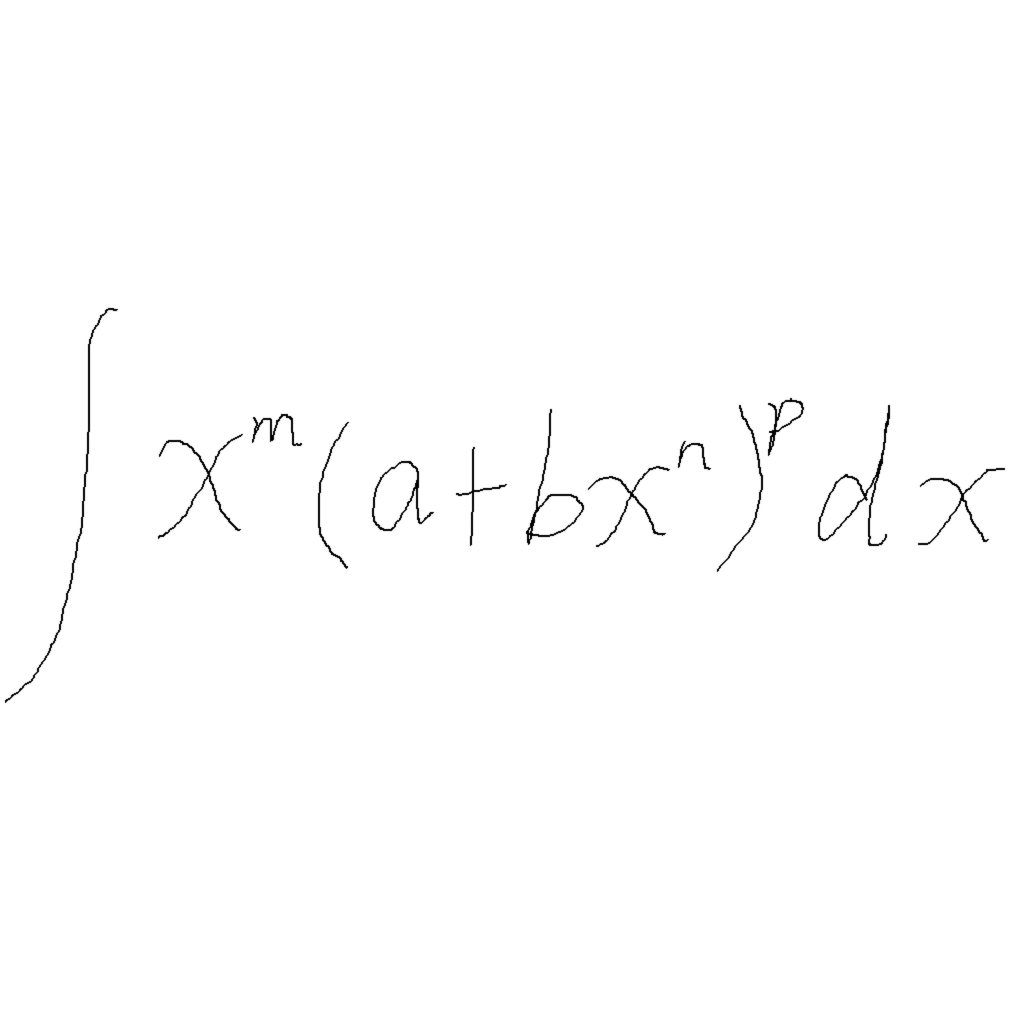 ∫ x^m (a+bx^n)^p dx